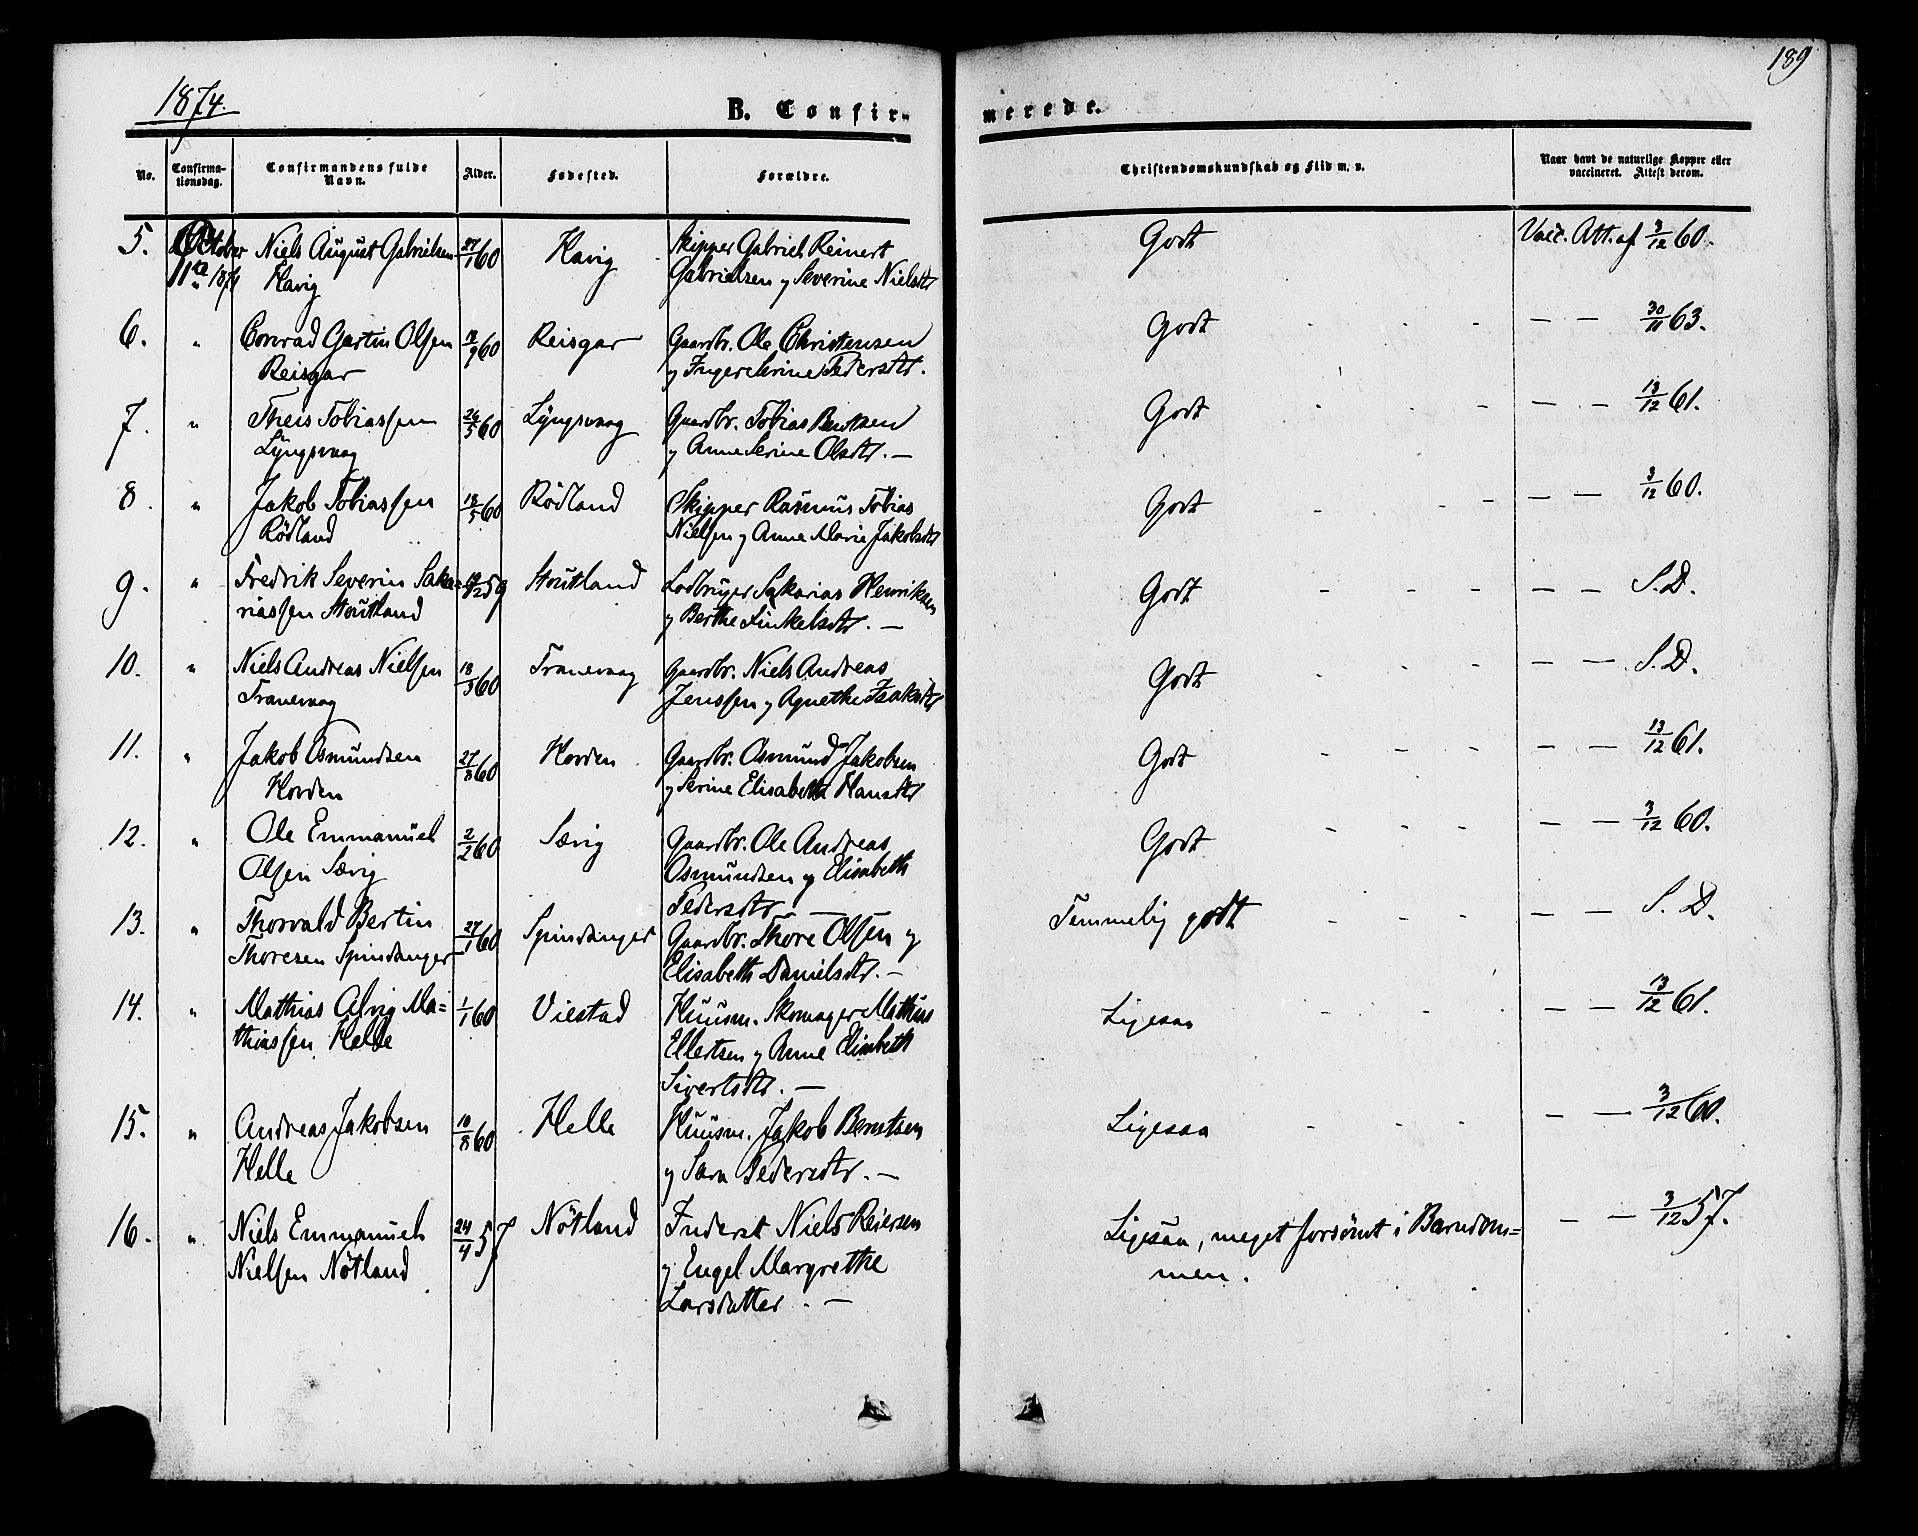 1874.
189
B. Confir-
merede.
No.
Confirma-
tionsdag.
Confirmandens fulde
Navn.
Alder.
Fødested.
Forældre.
Christendomskundskab og Flid m. v.
Naar havt de naturlige Kopper eller
vaccineret. Attest derom.
5. October Niels August Gabrielsen 27/1 60 Havig Skipper Gabriel Reinert Godt Vacc. Att. af 3/12 60.
11te 1874 Havig Gabrielsen og Severine Nielsdtr
6. " Conrad Gartin Olsen 18/9 60 Reisgar Gaardbr. Ole Christensen Godt - - - — — 30/11 63.
Reisgar og Inger Serine Pedersdtr.
7. " Theis Tobiassen 26/5 60 Lyngsvaag Gaardbr. Tobias Berntsen Godt - - - — — 13/12 61.
Lyngsvaag og Anne Serine Olsdtr. —
8. " Jakob Tobiassen 18/5 60 Rödland Skipper Rasmus Tobias Godt - - - — — 3/12 60.
Rödland Nielsen og Anne Marie Jakobsdtr
9. " Fredrik Severin Saka= 59 Stoutland Sakarias Henriksen Godt - - - — — S. D.
riassen Stoutland og Berthe Finkelsdtr. —
10. " Niels Andreas Nielsen 18/5 60 Tranevaag Gaardbr. Niels Andreas Godt - - - — — S. D.
Tranevaag Jenssen og Agnethe Isaksdtr
11. " Jakob Osmundsen 27/8 60 Horden Gaardbr. Osmund Jakobsen Godt - - - — — 13/12 61.
Horden og Serine Elisabeth Hansdtr
12. " Ole Emmanuel 2/2 60 Sævig Gaardbr. Ole Andreas Godt - - - — — 3/12 60.
Olsen Sævig Osmundsen og Elisabeth
Pedersdtr. —
13. " Thorvald Bertin 27/1 60 Spindanger Gaardbr. Thore Olsen og Temmelig godt - - - — — S. D.
Thoresen Spindanger Elisabeth Danielsdtr. —
14. " Mathias Alvig Ma= 1/1 60 Viestad Huusm. Skomager Mathias Ligesaa - - - — — 13/12 61.
thiassen Helle Ellertsen og Anne Elisabeth
Sivertsdtr. —
15. " Andreas Jakobsen 10/8 60 Helle Huusm. Jakob Berntsen Ligesaa - - - — — 3/12 60.
Helle og Sara Pedersdtr. —
16. " Niels Emmanuel 24/4 57 Nötland Inderst Niels Reiersen Ligesaa, meget forsömt i Barndom= — — 3/12 57.
Nielsen Nötland og Engel Margrethe men.
Larsdatter. —